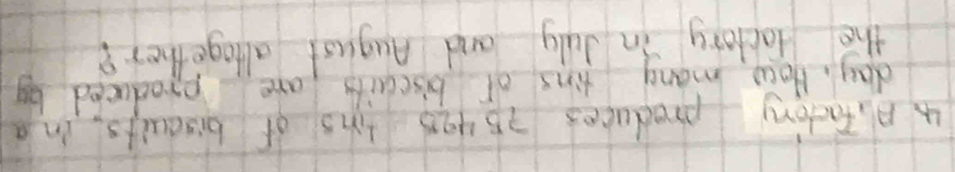 4. A factory produces 75425 tins of biscuits in a
day. How many tins of biscuits are produced by
the factory in July and August altogether?